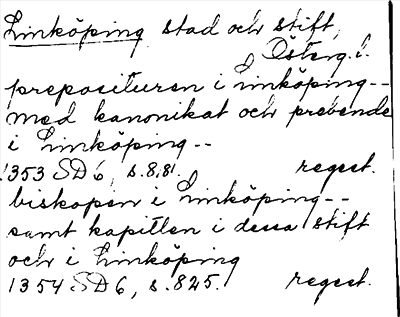 Linköping stad och stift,
Österg. l.
preposituren i Linköping--
med kanonikat och prebende
i Linköping--
1353 SD 6, s. 8,81. regest.
biskopen i Linköping--
samt kapitlen i dessa stift
och i Linköping
1354 SD 6, s. 825. regest.